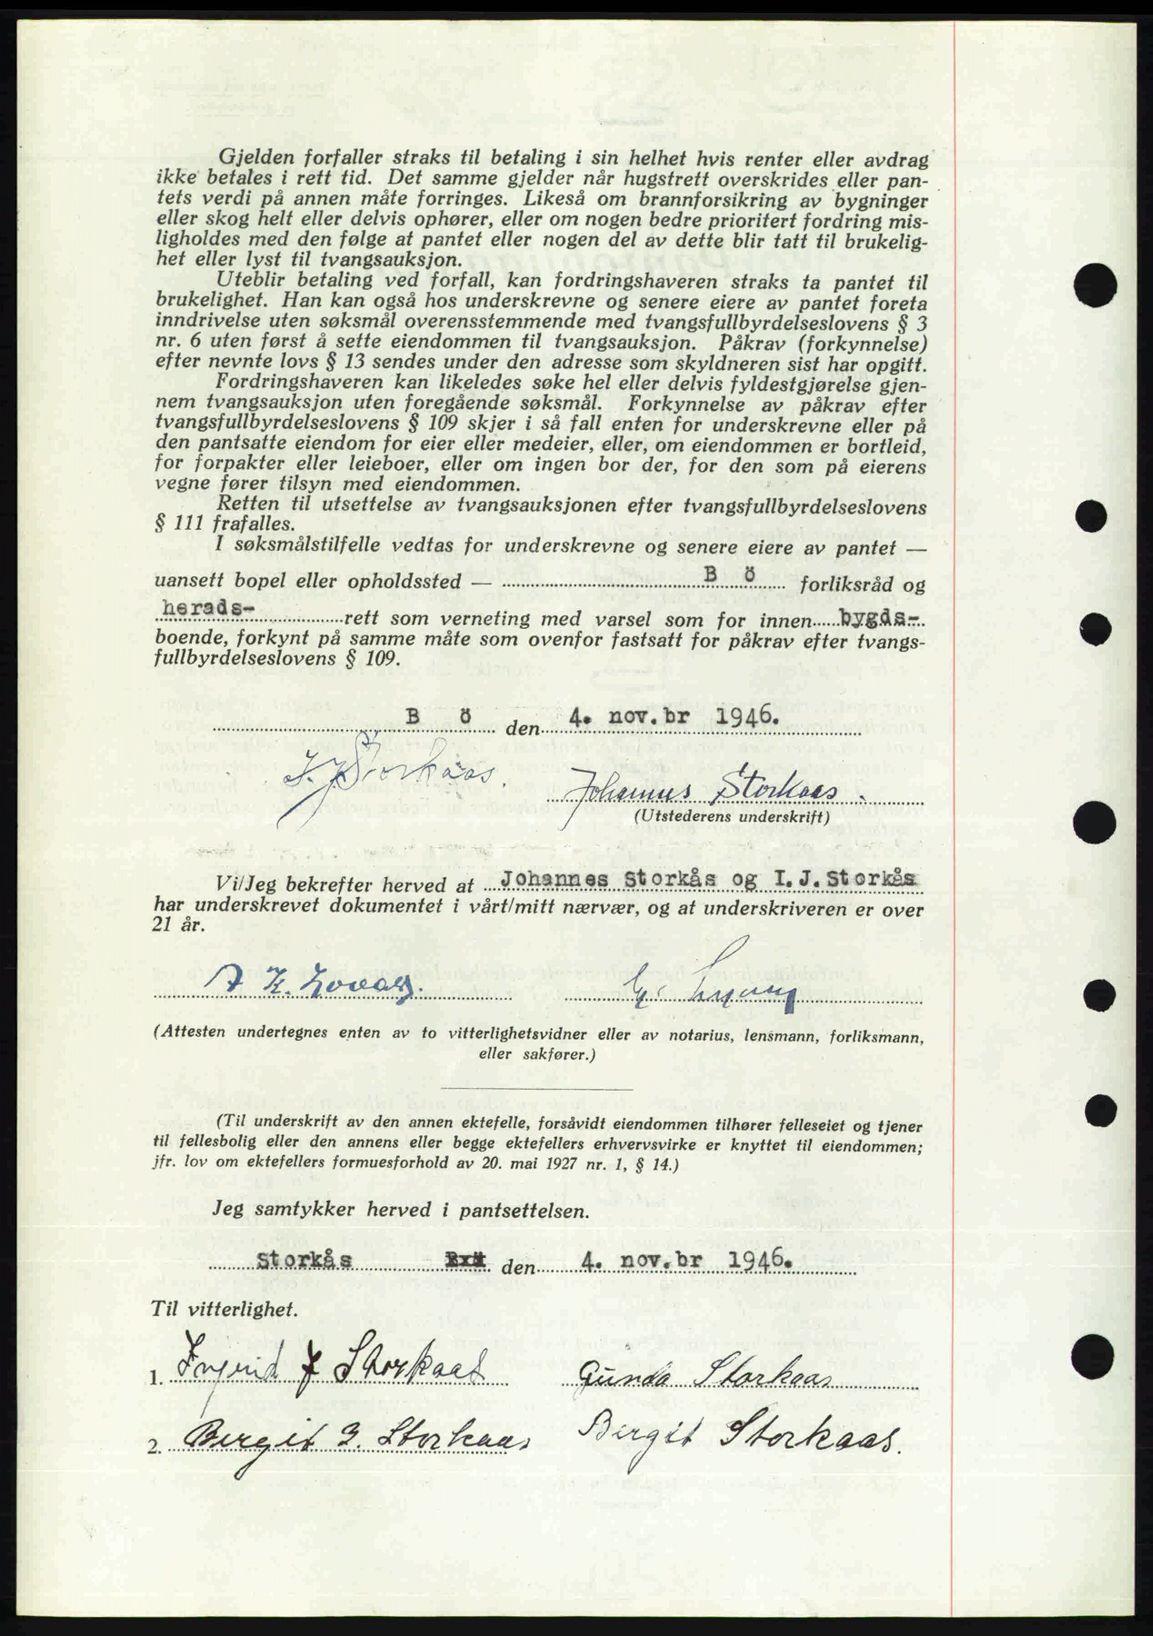 Gjelden forfaller straks til betaling i sin helhet hvis renter eller avdrag
ikke betales i rett tid. Det samme gjelder når hugstrett overskrides eller pan-
tets verdi på annen måte forringes. Likeså om brannforsikring av bygninger
eller skog helt eller delvis ophører, eller om nogen bedre prioritert fordring mis-
ligholdes med den følge at pantet eller nogen del av dette blir tatt til brukelig-
het eller lyst til tvangsauksjon.
Uteblir betaling ved forfall, kan fordringshaveren straks ta pantet til
brukelighet. Han kan også hos underskrevne og senere eiere av pantet foreta
inndrivelse uten søksmål overensstemmende med tvangsfullbyrdelseslovens § 3
nr. 6 uten først å sette eiendommen til tvangsauksjon. Påkrav (forkynnelse)
efter nevnte lovs § 13 sendes under den adresse som skyldneren sist har opgitt.
Fordringshaveren kan likeledes søke hel eller delvis fyldestgjørelse gjen-
nem tvangsauksjon uten foregående søksmål. Forkynnelse av påkrav efter
tvangsfullbyrdelseslovens § 109 skjer i så fall enten for underskrevne eller på
den pantsatte eiendom for eier eller medeier, eller, om eiendommen er bortleid,
for forpakter eller leieboer, eller om ingen bor der, for den som på eierens
vegne fører tilsyn med eiendommen.
Retten til utsettelse av tvangsauksjonen efter tvangsfullbyrdelseslovens
§ 111 frafalles.
I søksmålstilfelle vedtas for underskrevne og senere eiere av pantet —
uansett bopel eller opholdssted — B ö forliksråd og
herads- rett som verneting med varsel som for innen bygds-
boende, forkynt på samme måte som ovenfor fastsatt for påkrav efter tvangs-
fullbyrdelseslovens § 109.
B ö den 4. nov.br 1946.
I. J. Storkaas. Johannes Storkaas.
(Utstederens underskrift)
Vi/Jeg bekrefter herved at Johannes Storkås og I.J.Storkås
har underskrevet dokumentet i vårt/mitt nærvær, og at underskriveren er over
21 år.
(Attesten undertegnes enten av to vitterlighetsvidner eller av notarius, lensmann, forliksmann,
eller sakfører.)
(Til underskrift av den annen ektefelle, forsåvidt eiendommen tilhører felleseiet og tjener
til fellesbolig eller den annens eller begge ektefellers erhvervsvirke er knyttet til eiendommen;
jfr. lov om ektefellers formuesforhold av 20. mai 1927 nr. 1, § 14.)
Jeg samtykker herved i pantsettelsen.
Storkås den 4. nov.br 1946.
Til vitterlighet.
1. Ingrid J Storkaas Gunda Storkaas
2. Bergit J. Storkaas Bergit Storkaas.